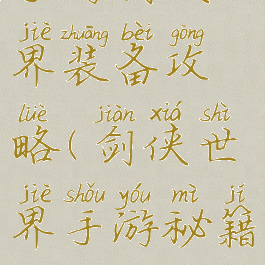 jiè zhuāng bèi gōng
界装备攻
lüè jiàn xiá shì
略(剑侠世
jiè shǒu yóu mì jí
界手游秘籍